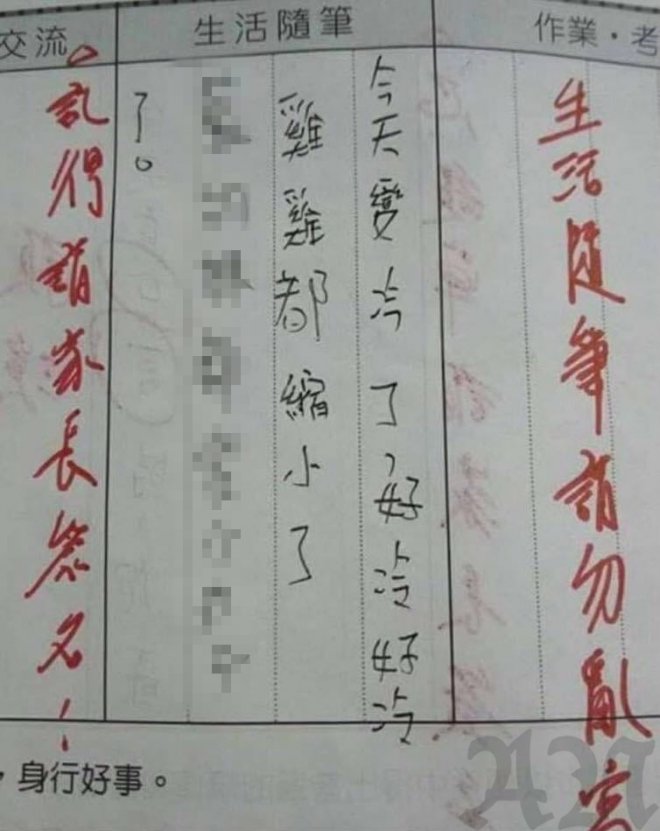 作業・考
生活隨筆
交流
生活隨筆請勿亂寫
今天變冷了,好冷好冷
雞雞都縮小了
了。
記得請家長簽名!
,身行好事。